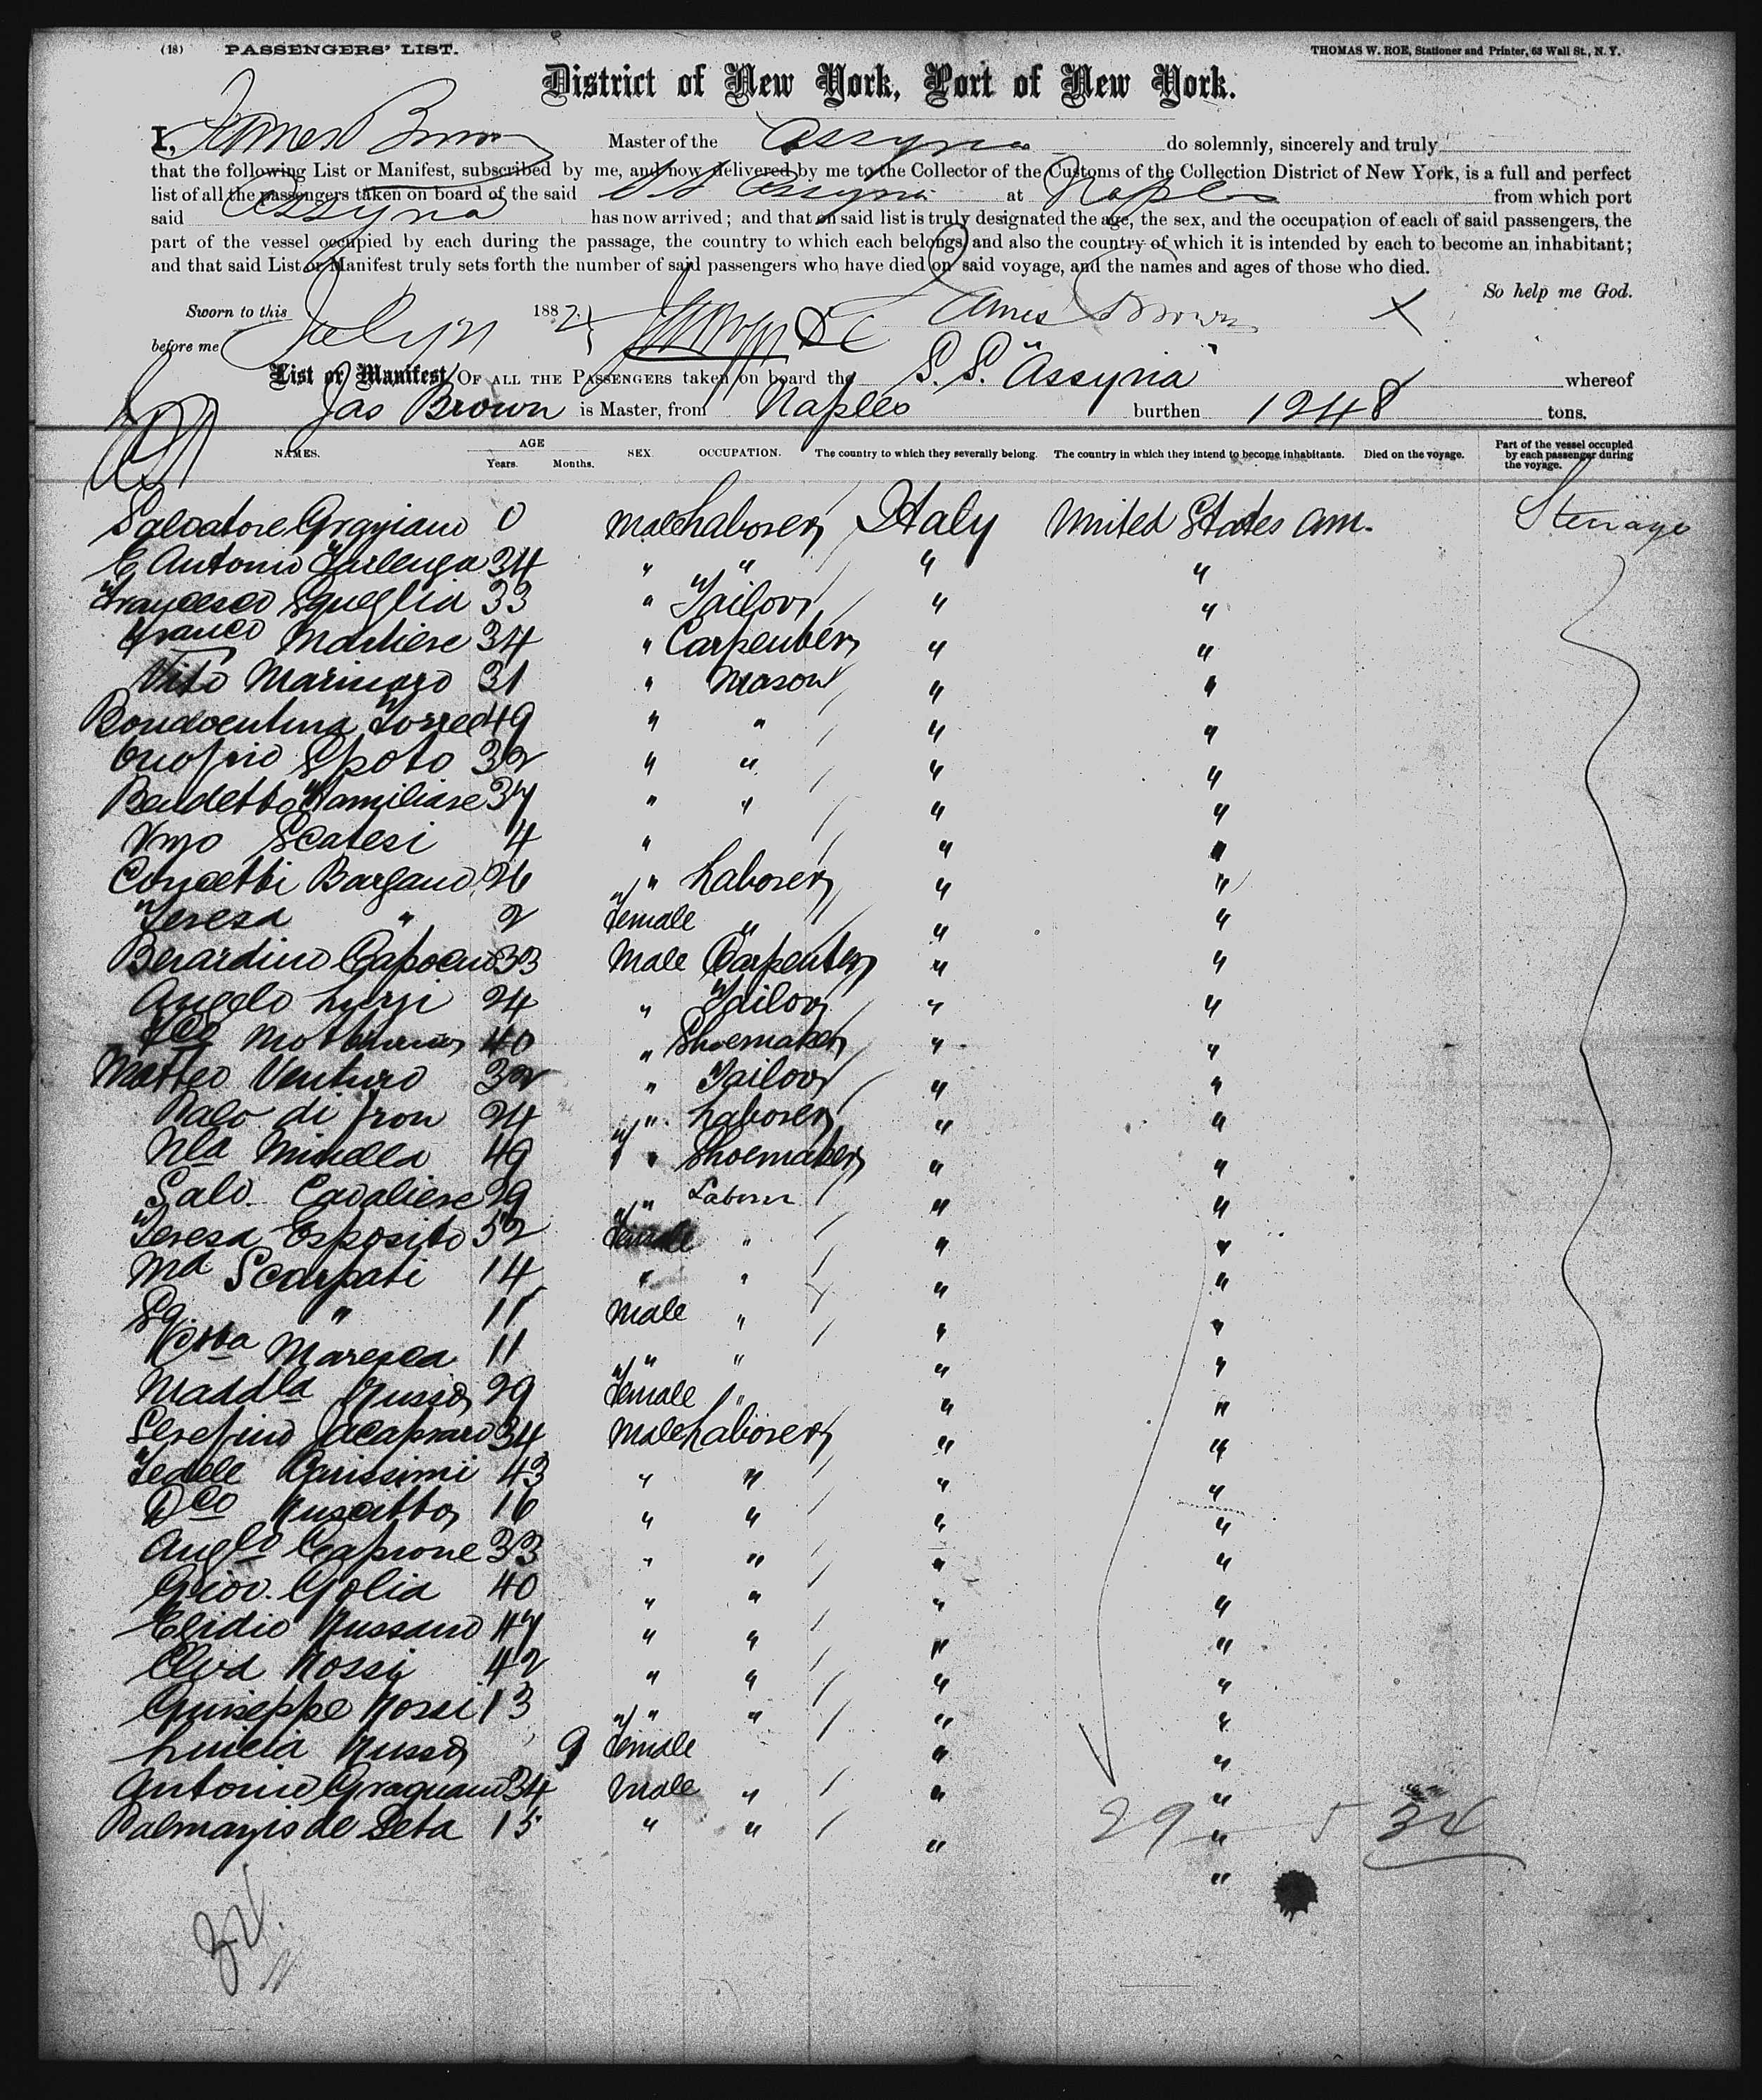 (18) PASSENGERS' LIST. THOMAS W. ROE, Stationer and Printer, 63 Wall St., N. Y.
District of New York, Port of New York.
I, James Brown Master of the Assyria do solemnly, sincerely and truly
that the following List or Manifest, subscribed by me, and now delivered by me to the Collector of the Customs of the Collection District of New York, is a full and perfect
list of all the passengers taken on board of the said SS Assyria at Naples from which port
said Assyria has now arrived; and that on said list is truly designated the age, the sex, and the occupation of each of said passengers, the
part of the vessel occupied by each during the passage, the country to which each belongs, and also the country of which it is intended by each to become an inhabitant;
and that said List or Manifest truly sets forth the number of said passengers who have died on said voyage, and the names and ages of those who died.
So help me God.
Sworn to this July 21 1882 James Brown X
before me
List or Manifest OF ALL THE PASSENGERS taken on board the S. S. "Assyria" whereof
Jas Brown is Master, from Naples burthen 1248 tons.
NAMES. AGE Years. Months. SEX. OCCUPATION. The country to which they severally belong. The country in which they intend to become inhabitants. Died on the voyage. Part of the vessel occupied by each passenger during the voyage.
Salvatore Gragnano 0 Male Laborer Italy United States Am. Steerage
C. Antonio 34 " " " "
Francesco Squeglia 33 " Tailor " "
Franco Marliere 34 " Carpenter " "
Vito Marinaro 31 " Mason " "
Torred 49 " " " "
Onofrio Spoto 32 " " " "
Bendetto Familiare 37 " " " "
Vnzo Scalesi 4 " " "
Concetti Bargano 26 " Laborer " "
Teresa " 2 Female " " "
Berardino Capocu 33 Male Carpenter " "
Angelo Luzzi 24 " Tailor " "
40 " Shoemaker " "
Matteo Venturo 32 " Tailor " "
Palo di Fron 24 " Laborer " "
Nla Minella 49 " Shoemaker " "
Salv. Cavaliere 29 " Laborer " "
Teresa Esposito 52 Female " " "
Md Scarpati 14 " " " "
Sq " 11 Male " " "
Maresca 11 " " " "
Maddla Russo 29 Female " " "
Serefino Jacapraro 34 Male Laborer " "
Fedele Carissimi 43 " " " "
Dco Muscatto 16 " " " "
Anglo Caprone 33 " " " "
Giov. Golia 40 " " " "
Elidio Russano 47 " " " "
Clva Rossi 42 " " " "
Guiseppe Rossi 13 " " " "
Lucia Russo 9 Female " "
Antonio Gragnano 34 Male " " "
de Leta 15 " " " "
29 5 34
"
34